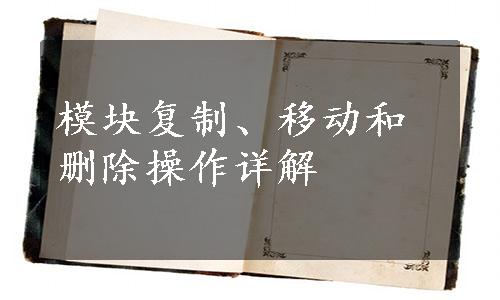 模块复制、移动和
删除操作详解